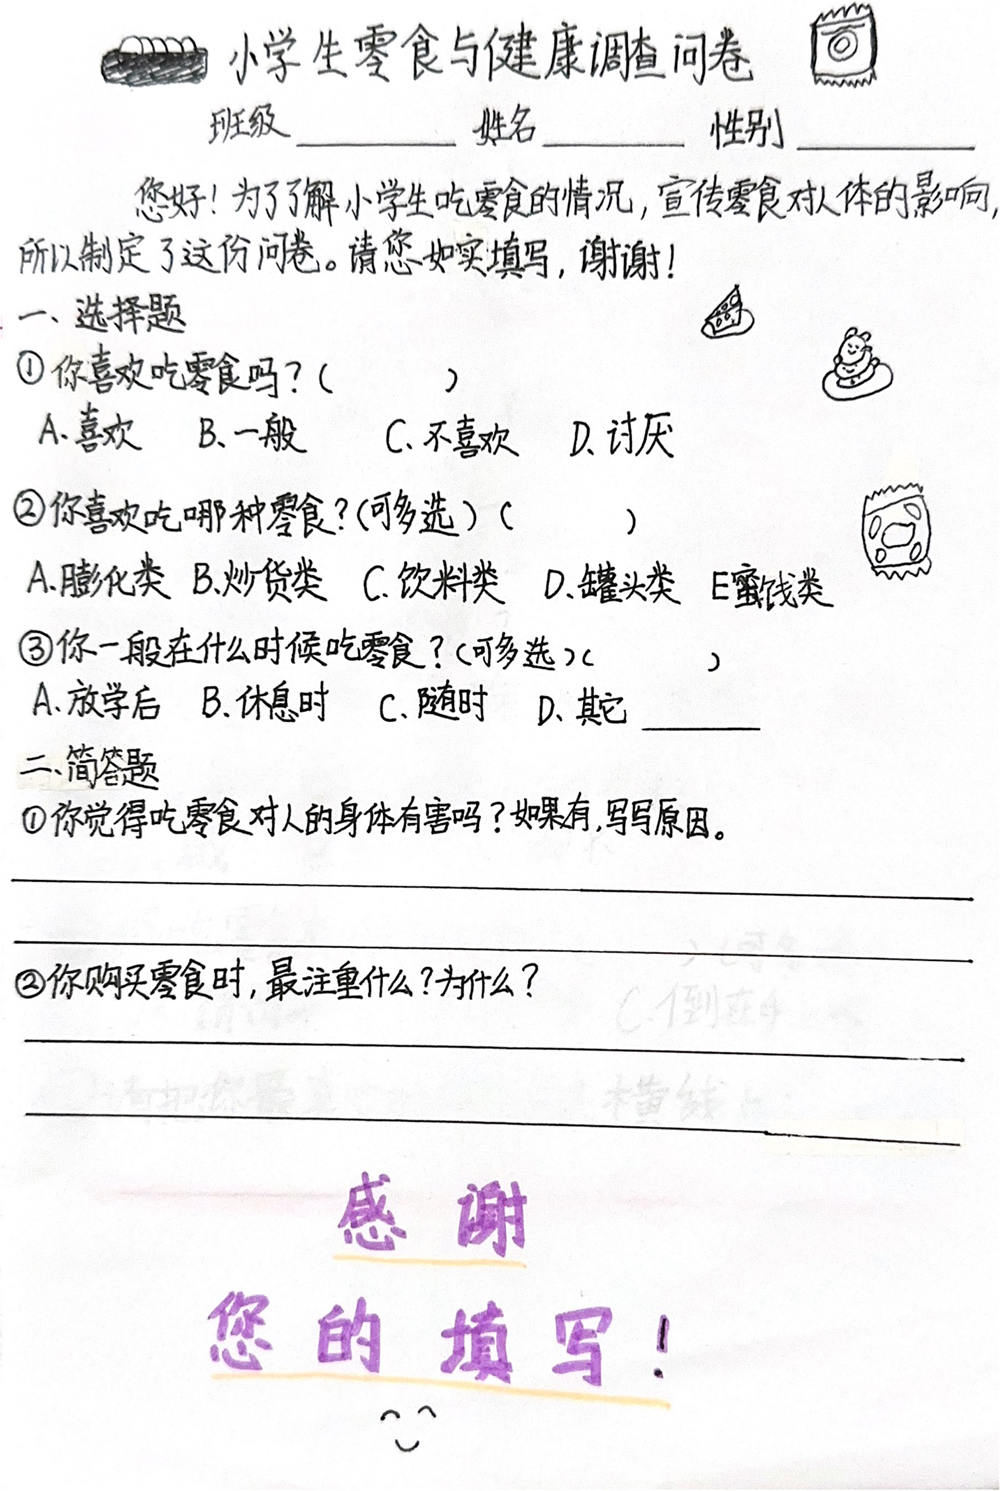 小学生零食与健康调查问卷
班级______ 姓名______ 性别______
您好！为了了解小学生吃零食的情况，宣传零食对人体的影响，
所以制定了这份问卷。请您如实填写，谢谢！
一、选择题
①你喜欢吃零食吗？（ ）
A.喜欢 B.一般 C.不喜欢 D.讨厌
②你喜欢吃哪种零食？（可多选）（ ）
A.膨化类 B.炒货类 C.饮料类 D.罐头类 E蜜饯类
③你一般在什么时候吃零食？（可多选）（ ）
A.放学后 B.休息时 C.随时 D.其它______
二、简答题
①你觉得吃零食对人的身体有害吗？如果有，写写原因。
②你购买零食时，最注重什么？为什么？
感谢
您的填写！